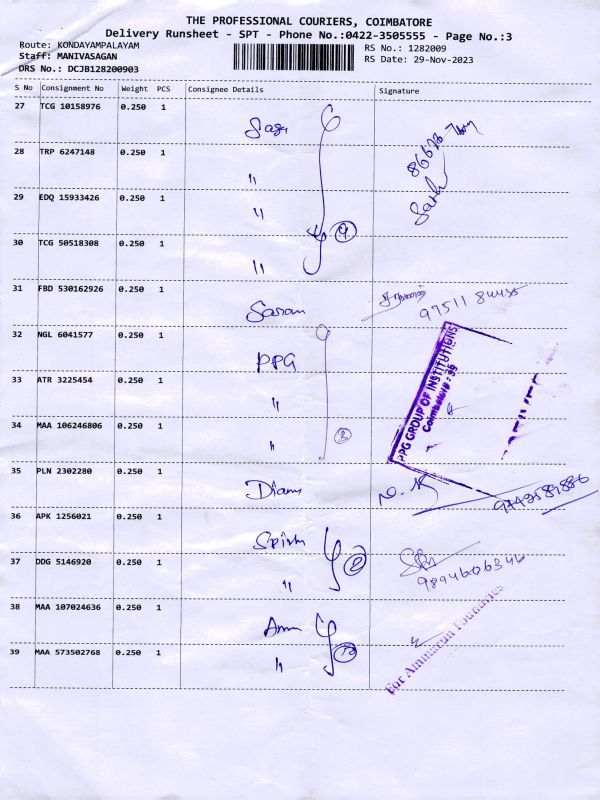 THE PROFESSIONAL COURIERS, COIMBATORE
Delivery Runsheet - SPT - Phone No.:0422-3505555 - Page No.:3
Route: KONDAYAMPALAYAM
RS No.: 1282009
Staff: MANIVASAGAN
RS Date: 29-Nov-2023
DRS No.: DCJB128200903
S No Consignment No Weight PCS Consignee Details Signature
27 TCG 10158976 0.250 1
28 TRP 6247148 0.250 1 "
29 EDQ 15933426 0.250 1 "
4
30 TCG 50518308 0.250 1 "
31 FBD 530162926 0.250 1 Saran
32 NGL 6041577 0.250 1 PPG
PPG GROUP OF INSTITUTIONS
Coimbatore - 35
33 ATR 3225454 0.250 1 "
34 MAA 106246806 0.250 1 "
35 PLN 2302280 0.250 1
36 APK 1256021 0.250 1
37 DDG 5146920 0.250 1 "
9894606346
38 MAA 107024636 0.250 1
39 MAA 573502768 0.250 1 "
For Ammarun Foundries